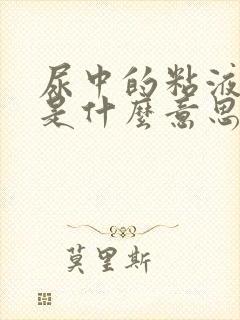 尿中的粘液
是什麼意思
莫里斯